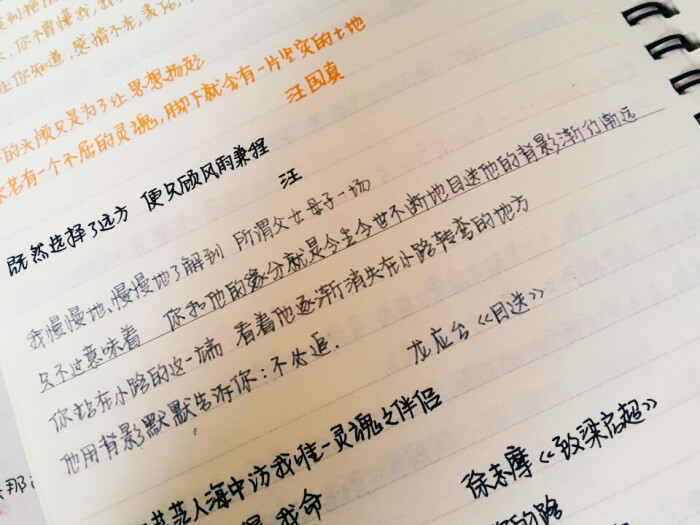 你不曾懂我,我
让你知道,感情不在,责任,
的头颅只是为了让思想扬起
若有一个不屈的灵魂,脚下就会有一片坚实的土地
汪国真
既然选择了远方 便只顾风雨兼程
汪
我慢慢地、慢慢地了解到 所谓父女母子一场
只不过意味着 你和他的缘分就是今生今世不断地目送他的背影渐行渐远
你站在小路的这一端 看着他逐渐消失在小路转弯的地方
他用背影默默告诉你:不必追.
龙应台《目送》
茫茫人海中访我唯一灵魂之伴侣
我命
徐志摩《致梁启超》
的路
那